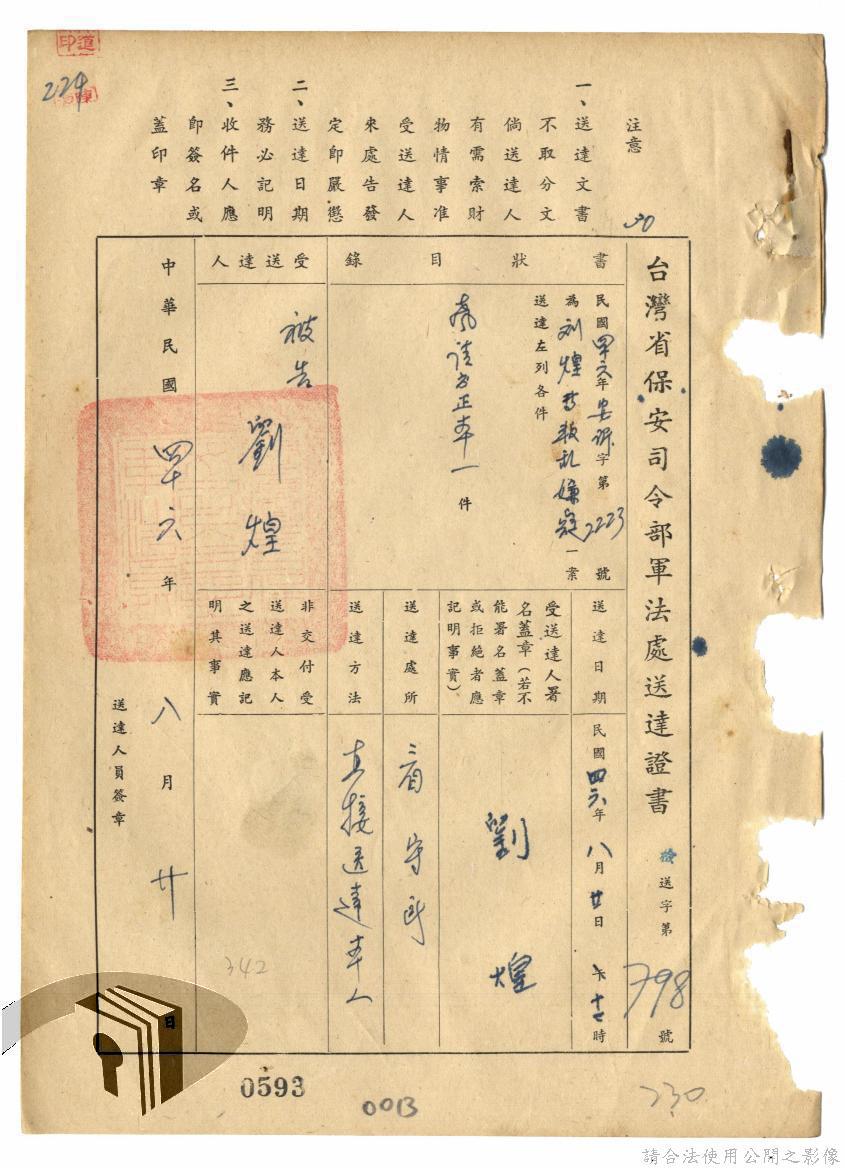 台灣省保安司令部軍法處送達證書 送字第798號
注意
一、送達文書
不取分文
倘送達人
有需索財
物情事准
受送達人
來處告發
定即嚴懲
二、送達日期
務必記明
三、收件人應
即簽名或
蓋印章
書狀目錄
民國四六年安訴字第2223號
為刘煌等叛乱嫌疑一案
送達左列各件
正本一件
受送達人
被告 劉煌
送達日期
民國四六年八月廿日十七時
受送達人署
名蓋章(若不
能署名蓋章
或拒絕者應
記明事實)
劉煌
送達處所
看守所
送達方法
直接送達本人
非交付受
送達人本人
之送達應記
明其事實
中華民國四十六年八月廿
送達人員簽章
224
342
0593
00B
230
請合法使用公開之影像